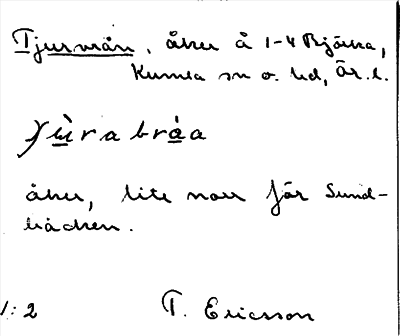 Tjurvrån, åker å 1-4 Björka,
Kumla sn o. hd, Är. l.
åker, lite norr för Sund-
bäcken.
1:2 T. Ericsson